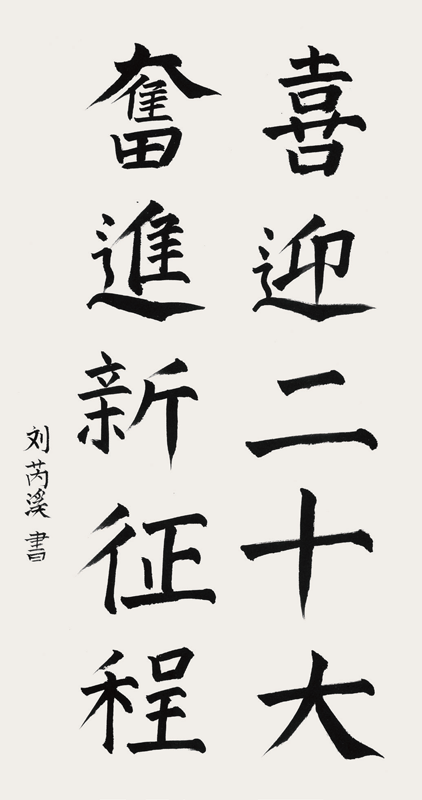 喜迎二十大
奮進新征程
刘芮溪書